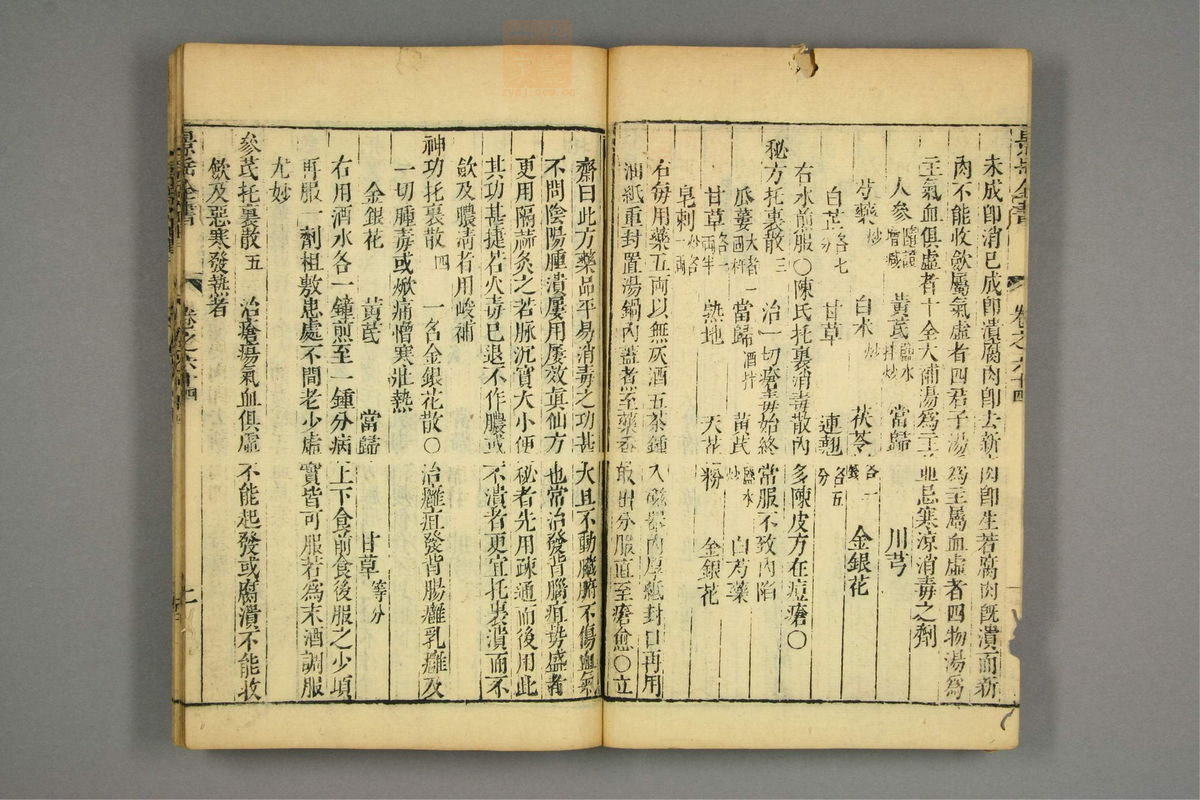 景岳全書
卷之六十四
未成卽消已成卽潰腐肉卽去新肉卽生若腐肉旣潰而新
肉不能收斂屬氣虛者四君子湯爲主屬血虛者四物湯爲
主氣血俱虛者十全大補湯爲主並忌寒涼消毒之劑
人參 黃芪鹽水拌炒 當歸 川芎
芍藥炒 白朮炒 茯苓各一錢 金銀花
白芷各七分 甘草 連翹各五分
右水煎服〇陳氏托裏消毒散內多陳皮方在痘瘡〇
秘方托裏散三 治一切瘡毒始終常服不致內陷
瓜蔞大者一箇杵 當歸酒拌 黃芪鹽水炒 白芍藥
甘草各一兩半 熟地 天花粉 金銀花
皂刺炒各一兩
右每用藥五兩以無灰酒五茶鍾入磁器內厚紙封口再用
油紙重封置湯鍋內蓋煮至藥香取出分服直至瘡愈〇立
齋曰此方藥品平易消毒之功甚大且不動臟腑不傷血氣
不問陰陽腫潰屢用屢效眞仙方也常治發背腦疽勢盛者
更用隔蒜灸之若脈沉實大小便秘者先用疎通而後用此
其功甚捷若火毒已退不作膿或不潰者更宜托裏潰而不
斂及膿淸者用峻補
神功托裏散四 一名金銀花散〇治癰疽發背腸癰乳癰及
一切腫毒或焮痛憎寒壯熱
金銀花 黃芪 當歸 甘草等分
右用酒水各一鐘煎至一鍾分病上下食前食後服之少頃
再服一劑柤敷患處不問老少虛實皆可服若爲末酒調服
尤妙
參芪托裏散五 治瘡瘍氣血俱虛不能起發或腐潰不能收
斂及惡寒發熱者
景岳全書
卷之六十四